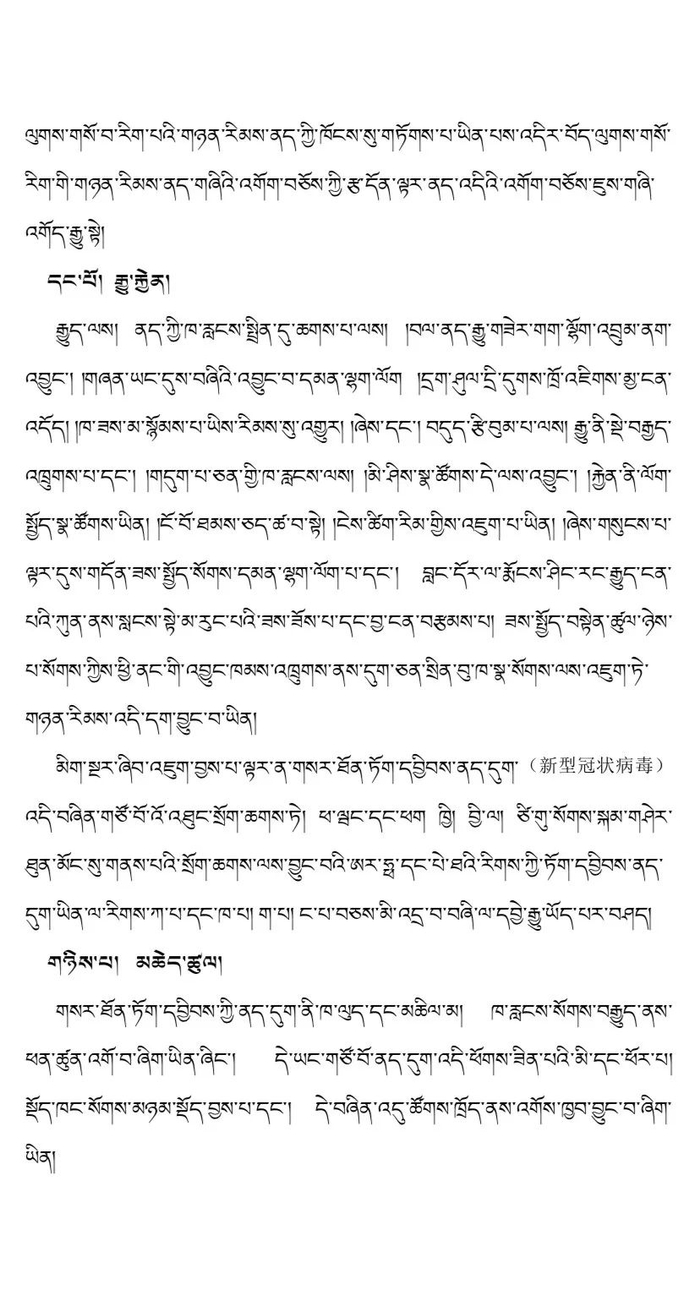 ལུགས་གསོ་བ་རིག་པའི་གཉན་རིམས་ནད་ཀྱི་ཁོངས་སུ་གཏོགས་པ་ཡིན་པས་འདིར་བོད་ལུགས་གསོ་
རིག་གི་གཉན་རིམས་ནད་གཞིའི་འགོག་བཅོས་ཀྱི་རྩ་དོན་ལྟར་ནད་འདིའི་འགོག་བཅོས་ཇུས་གཞི་
འགོད་རྒྱུ་སྟེ།
དང་པོ། རྒྱུ་རྐྱེན།
རྒྱུད་ལས། ནད་ཀྱི་ཁ་རླངས་སྤྲིན་དུ་ཆགས་པ་ལས། །བལ་ནད་རྒྱུ་གཟེར་གག་ལྷོག་འབྲུམ་ནག་
འབྱུང་། །གཞན་ཡང་དུས་བཞིའི་འབྱུང་བ་དམན་ལྷག་ལོག །དྲག་ཤུལ་དྲི་དུགས་ཁྲོ་འཇིགས་མྱ་ངན་
འདོད། །ཁ་ཟས་མ་སྙོམས་པ་ཡིས་རིམས་སུ་འགྱུར། །ཞེས་དང་། བདུད་རྩི་བུམ་པ་ལས། རྒྱུ་ནི་སྡེ་བརྒྱད་
འཁྲུགས་པ་དང་། །གདུག་པ་ཅན་གྱི་ཁ་རླངས་ལས། །མི་ཤིས་སྣ་ཚོགས་དེ་ལས་འབྱུང་། །རྐྱེན་ནི་ལོག་
སྤྱོད་སྣ་ཚོགས་ཡིན། །ངོ་བོ་ཐམས་ཅད་ཚ་བ་སྟེ། །ངེས་ཚིག་རིམ་གྱིས་འཇུག་པ་ཡིན། །ཞེས་གསུངས་པ་
ལྟར་དུས་གདོན་ཟས་སྤྱོད་སོགས་དམན་ལྷག་ལོག་པ་དང་། བླང་དོར་ལ་རྨོངས་ཤིང་རང་རྒྱུད་ངན་
པའི་ཀུན་ནས་སླངས་སྟེ་མ་རུང་པའི་ཟས་ཟོས་པ་དང་བྱ་ངན་བརྩམས་པ། ཟས་སྤྱོད་བསྟེན་ཚུལ་ཉེས་
པ་སོགས་ཀྱིས་ཕྱི་ནང་གི་འབྱུང་ཁམས་འཁྲུགས་ནས་དུག་ཅན་སྲིན་བུ་ཁ་སྣ་སོགས་ལས་འཇུག་ཏེ་
གཉན་རིམས་འདི་དག་བྱུང་བ་ཡིན།
མིག་སྔར་ཞིབ་འཇུག་བྱས་པ་ལྟར་ན་གསར་ཐོན་ཏོག་དབྱིབས་ནད་དུག་（新型冠状病毒）
འདི་བཞིན་གཙོ་བོ་འོ་འཐུང་སྲོག་ཆགས་ཏེ། ཕ་ཝང་དང་ཕག ཁྱི། བྱི་ལ། ཙི་གུ་སོགས་སྐམ་གཤེར་
ཐུན་མོང་སུ་གནས་པའི་སྲོག་ཆགས་ལས་བྱུང་བའི་ཨར་ཧྥ་དང་པེ་ཐའི་རིགས་ཀྱི་ཏོག་དབྱིབས་ནད་
དུག་ཡིན་ལ་རིགས་ཀ་པ་དང་ཁ་པ། ག་པ། ང་པ་བཅས་མི་འདྲ་བ་བཞི་ལ་དབྱེ་རྒྱུ་ཡོད་པར་བཤད།
གཉིས་པ། མཆེད་ཚུལ།
གསར་ཐོན་ཏོག་དབྱིབས་ཀྱི་ནད་དུག་ནི་ཁ་ལུད་དང་མཆིལ་མ། ཁ་རླངས་སོགས་བརྒྱུད་ནས་
ཕན་ཚུན་འགོ་བ་ཞིག་ཡིན་ཞིང་། དེ་ཡང་གཙོ་བོ་ནད་དུག་འདི་ཕོགས་ཟིན་པའི་མི་དང་ཕོར་པ།
སྡོད་ཁང་སོགས་མཉམ་སྡོད་བྱས་པ་དང་། དེ་བཞིན་འདུ་ཚོགས་ཁྲོད་ནས་འགོས་ཁྱབ་བྱུང་བ་ཞིག་
ཡིན།